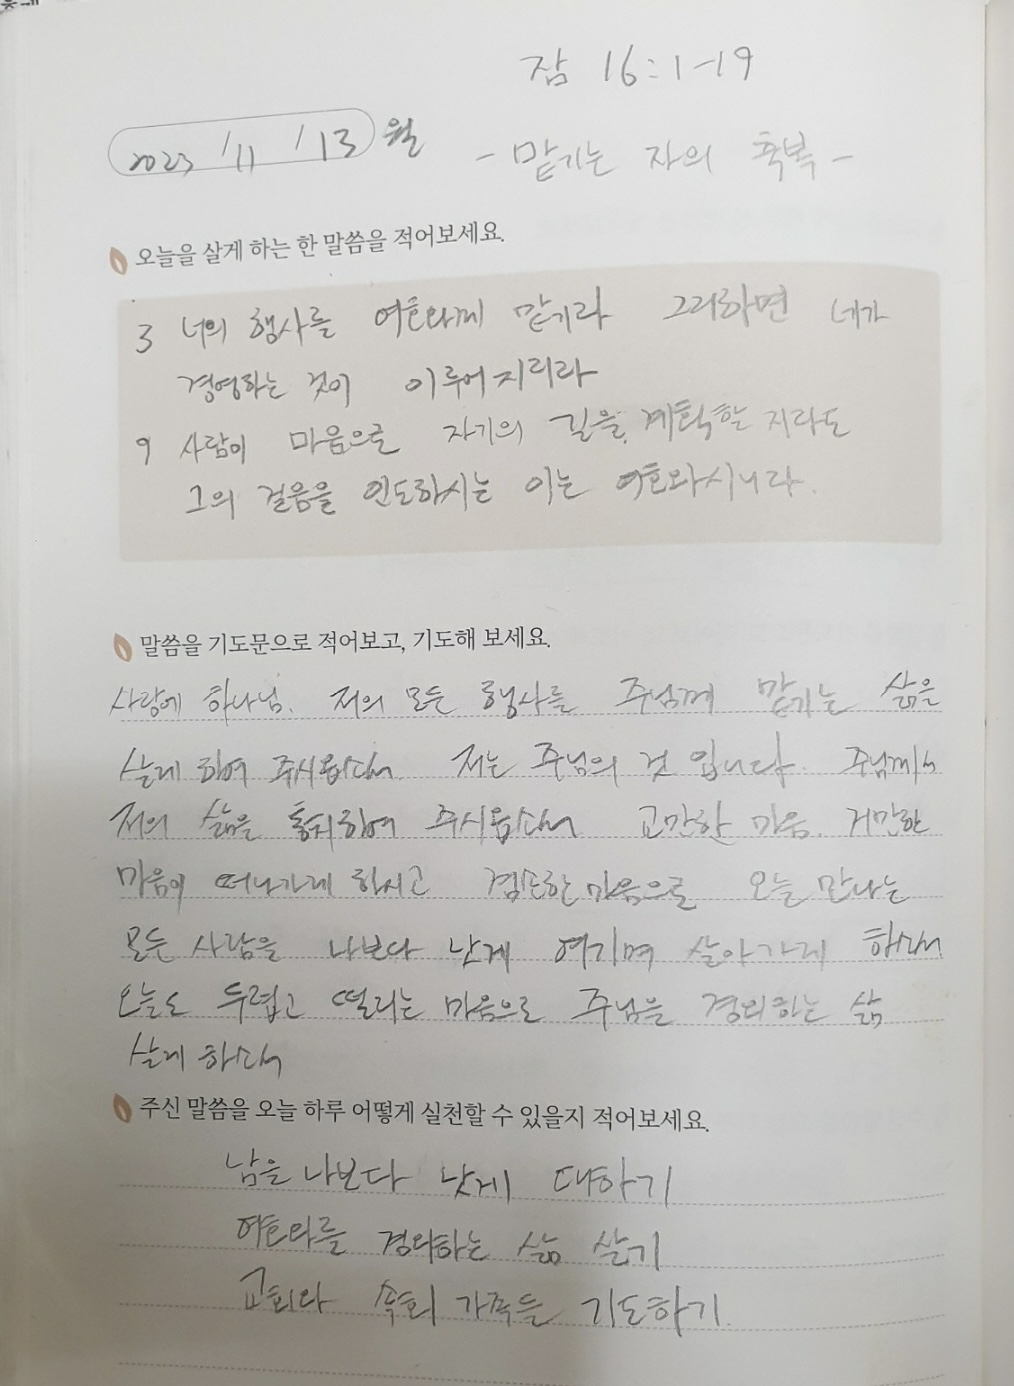 잠 16:1-19
2023/11/13 월
- 맡기는 자의 축복 -
오늘을 살게 하는 한 말씀을 적어보세요.
3 너의 행사를 여호와께 맡기라 그리하면 네가
경영하는 것이 이루어지리라
9 사람이 마음으로 자기의 길을 계획할지라도
그의 걸음을 인도하시는 이는 여호와시니라.
말씀을 기도문으로 적어보고, 기도해 보세요.
사랑에 하나님. 저의 모든 행사를 주님께 맡기는 삶을
살게 하여 주시옵소서 저는 주님의 것 입니다. 주님께서
저의 삶을 통치하여 주시옵소서 교만한 마음. 거만한
마음이 떠나가게 하시고 겸손한 마음으로 오늘 만나는
모든 사람을 나보다 낫게 여기며 살아가게 하소서
오늘도 두렵고 떨리는 마음으로 주님을 경외하는 삶
살게 하소서
주신 말씀을 오늘 하루 어떻게 실천할 수 있을지 적어보세요.
남을 나보다 낫게 대하기
여호와를 경외하는 삶 살기
교회와 속회 가족들 기도하기.